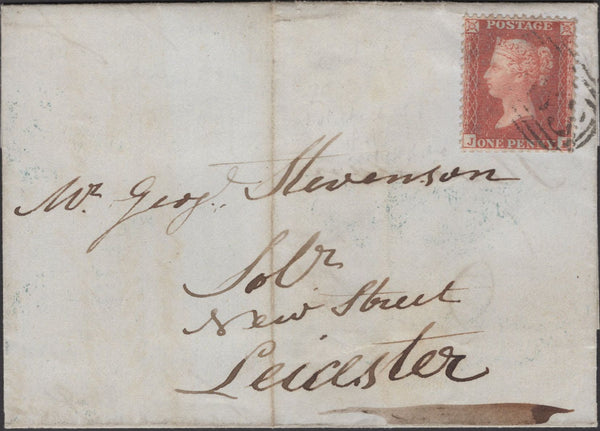 POSTAGE
J ONE PEN
Mr. Geo. Stevenson
Solr
New Street
Leicester